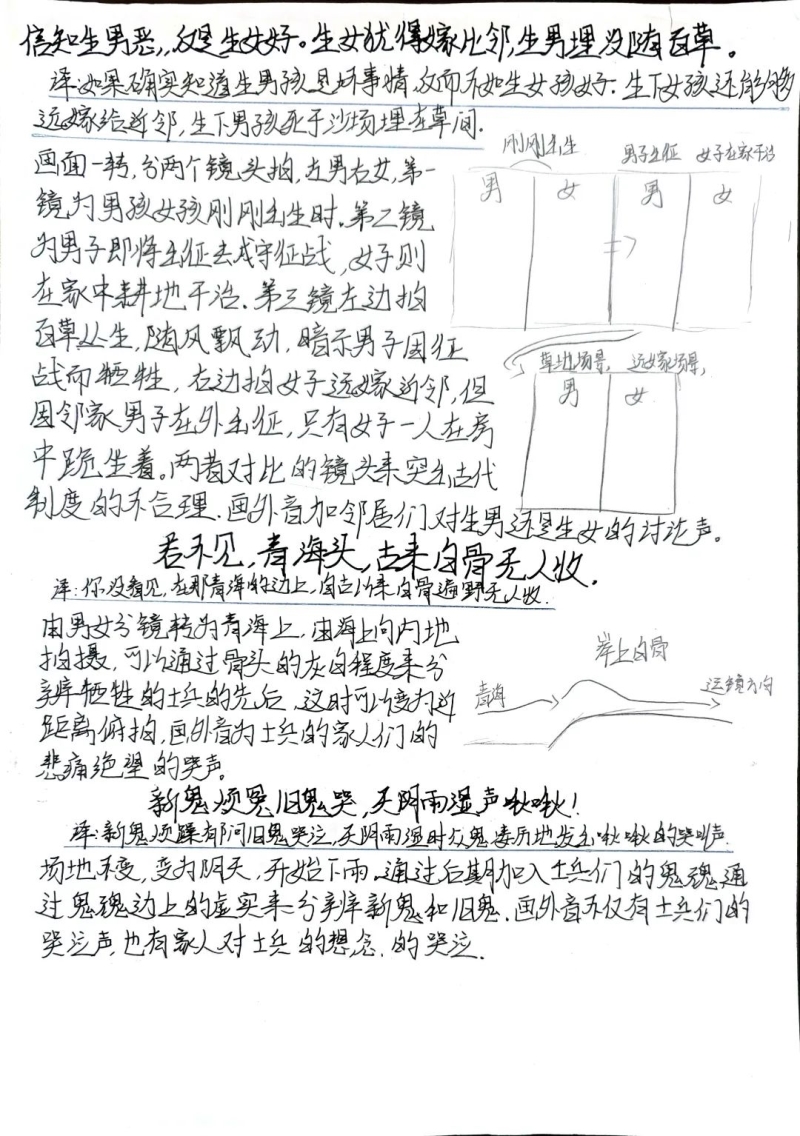 信知生男恶，反是生女好。生女犹得嫁比邻，生男埋没随百草。
译：如果确实知道生男孩是坏事情，反而不如生女孩好．生下女孩还能够
远嫁给近邻，生下男孩死于沙场埋在草间．
画面一转，分两个镜头拍，左男右女，第一
镜为男孩女孩刚刚出生时．第二镜
为男子即将出征去戍守征战，女子则
在家中耕地干活．第三镜左边拍
百草丛生，随风飘动，暗示男子因征
战而牺牲，右边拍女子远嫁近邻，但
因邻家男子在外出征，只有女子一人在房
中跪坐着。两者对比的镜头来突出古代
制度的不合理．画外音加邻居们对生男还是生女的讨论声。
刚刚出生
男子出征 女子在家干活
男 女 男 女
草地场景， 远嫁场景，
男 女
君不见，青海头，古来白骨无人收．
译：你没看见，在那青海的边上，自古以来白骨遍野无人收．
由男女分镜转为青海上，由海上向内地
拍摄，可以通过骨头的灰白程度来分
辨牺牲的士兵的先后，这时可以变为近
距离俯拍，画外音为士兵的家人们的
悲痛绝望的哭声。
岸上白骨
青海
运镜方向
新鬼烦冤旧鬼哭，天阴雨湿声啾啾！
译：新鬼烦躁都问旧鬼哭泣，天阴雨湿时众鬼凄厉地发出啾啾的哭叫声．
场地不变，变为阴天，开始下雨。通过后期加入士兵们的鬼魂，通
过鬼魂边上的虚实来分辨新鬼和旧鬼．画外音不仅有士兵们的
哭泣声，也有家人对士兵的想念．的哭泣．